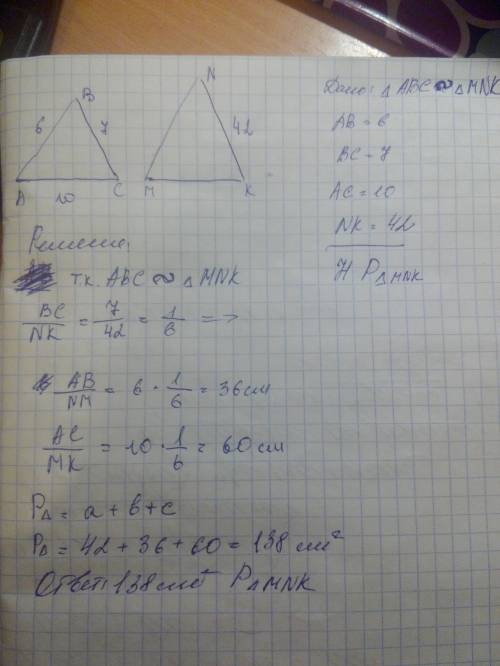 Дано: △ ABC ∾ △ MNK
AB = 6
BC = 7
AC = 10
NK = 42
Н P△MNK
B
6
7
A
10
C
N
42
M
K
Решение:
т.к. ABC ∾ △ MNK
BC/NK = 7/42 = 1/6 =>
AB/NM = 6 · 1/6 = 36 см
AC/MK = 10 · 1/6 = 60 см
P△ = a + b + c
P△ = 42 + 36 + 60 = 138 см²
Ответ: 138 см² P△MNK